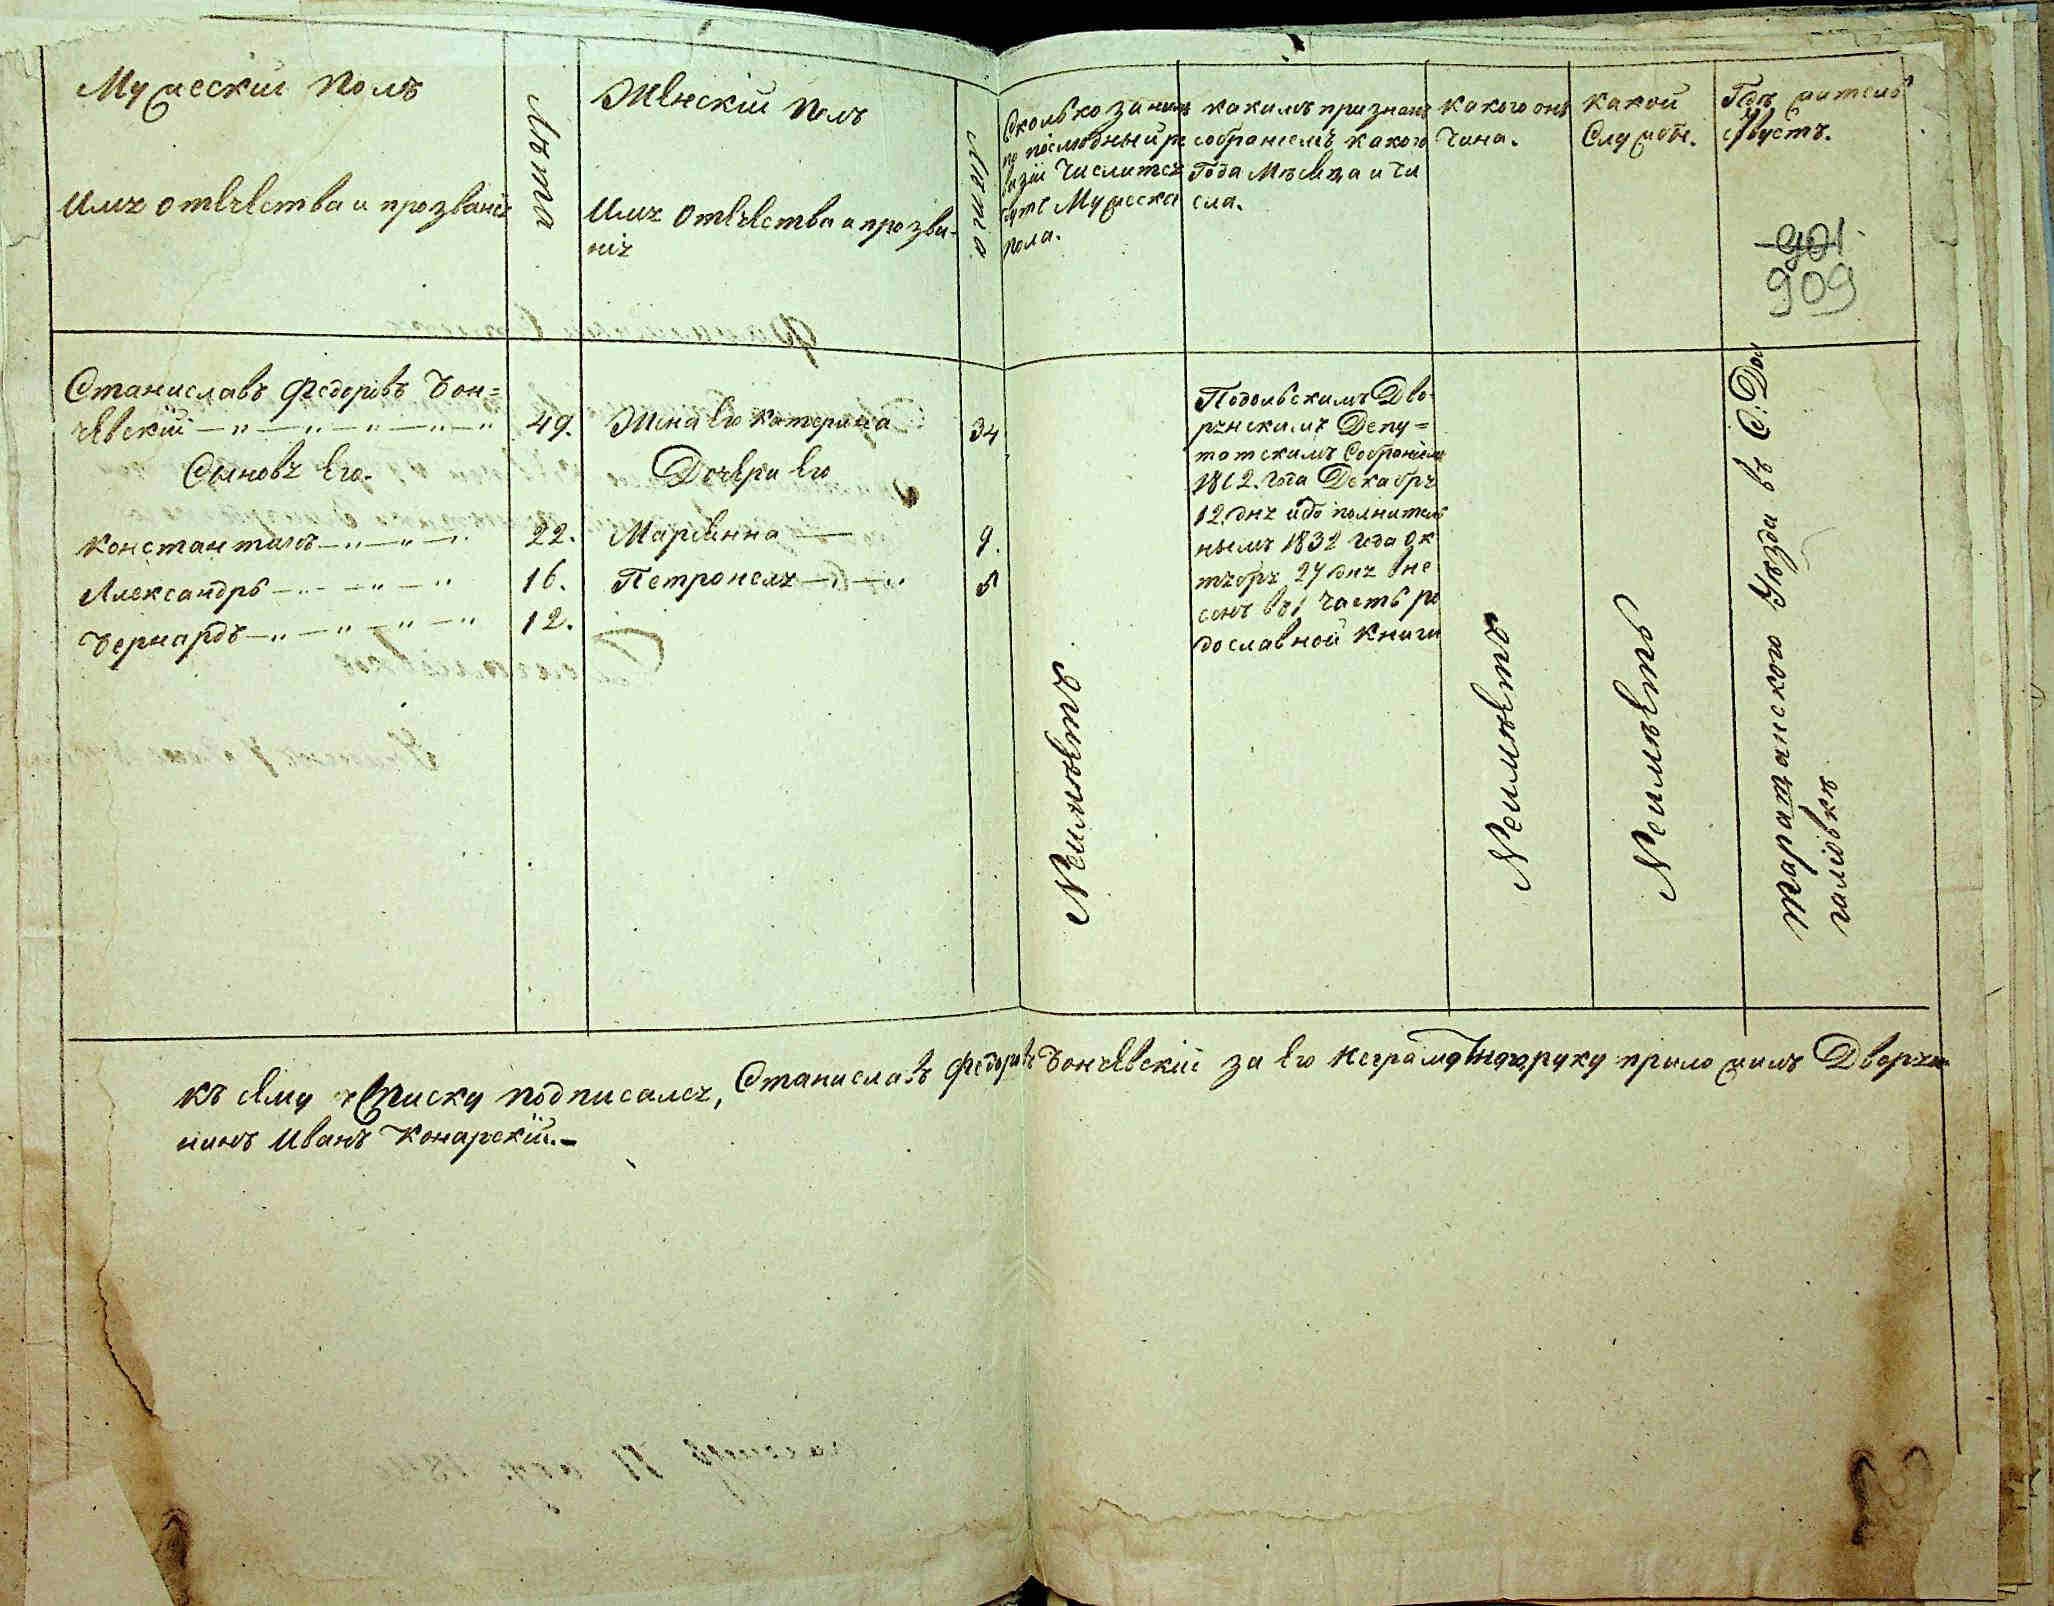 Мужескій Полъ
Имя отечества и прозваніе
Лѣта
Женскій Полъ
Имя Отечества и прозва-
ніе
Лѣта
Сколько за нимъ
по послѣдный ре
визіи числится
душъ Мужеска
пола.
какимъ признанъ
собраніемъ какого
Года Мѣсяца и чи
сла.
какого онъ
Чина.
какой
Службы.
Гдѣ жительс
твуетъ.
901
909
Станиславъ Федоровъ Бон=
чевскій
49.
Сыновя Его
Константинъ
22.
Александръ
16.
Бернардъ
12.
Жена Его Катерина
34
Дочери Его
Маріянна
9.
Петронеля
Неимѣетъ
Подольскимъ Дво-
рянскимъ Депу=
татскимъ Собраніем
1812. года Декабря
12. дня идополнитель
нымъ 1832 года Ок
тября 27 дня вне
сенъ въ 1 часть ро
дословной книги
Неимѣетъ
Неимѣетъ
Таращанского Уѣзда въ С:
галіовкѣ
къ сему списку подписался, Станиславъ Федоровъ Бончевскій за Его неграмотного, руку приложилъ Дворяни
нинъ Иванъ Конарскій.-